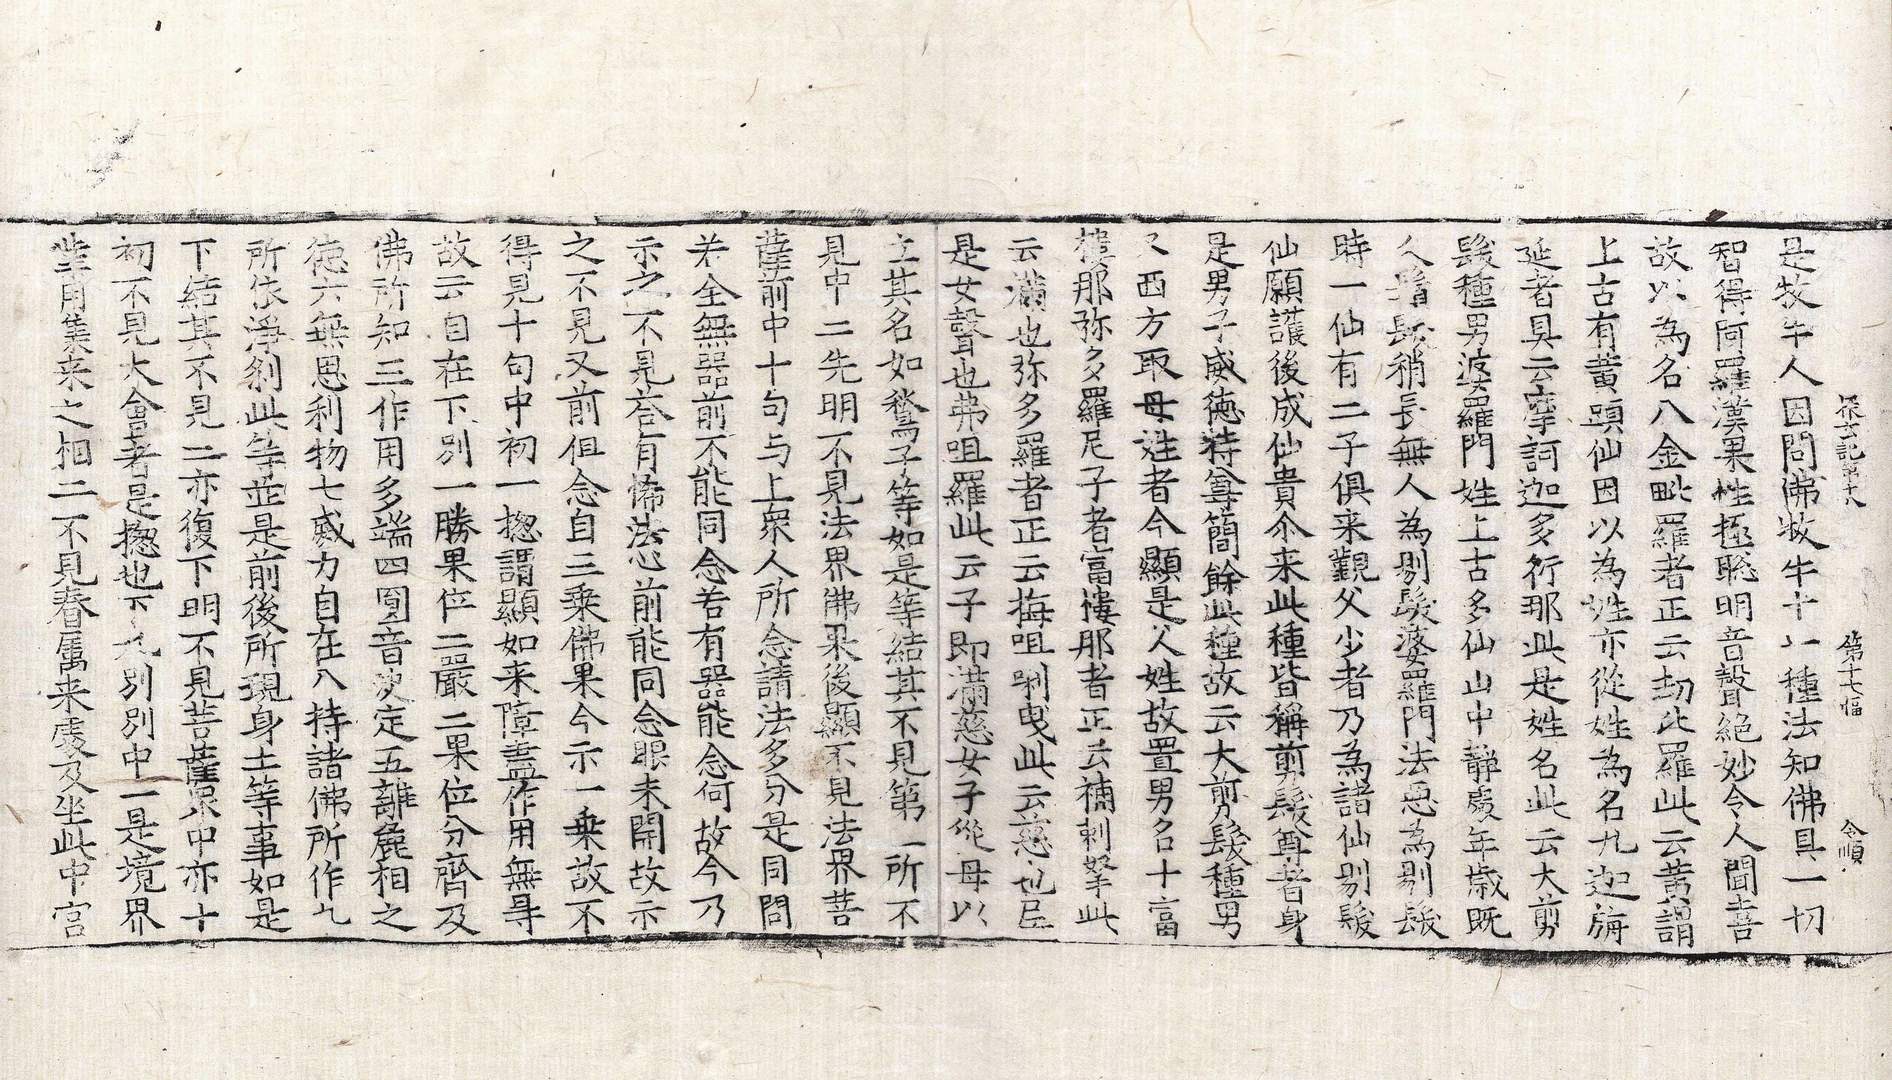 探玄記第十八 第十七幅 令順
是牧牛人因問佛牧牛十八種法知佛具一切
智得阿羅漢果性極聡明音聲絶妙令人聞喜
故以為名八金毗羅者正云劫比羅此云黄謂
上古有黄頭仙因以為姓亦從姓為名九迦旃
延者具云摩訶迦多衍那此是姓名此云大剪
髮種男婆羅門姓上古多仙山中静處年歳既
久鬚髮稍長無人為剔髮婆羅門法惡為剔髮
時一仙有二子俱来觀父少者乃為諸仙剔髮
仙願護後成仙貴尒来此種皆稱剪髮尊者身
是男子威徳特尊簡餘此種故云大剪髮種男
又西方取母姓者今顯是父姓故置男名十富
樓那弥多羅尼子者富樓那者正云補剌拏此
云滿也弥多羅者正云梅咀唎曳此云慈也尼
是女聲也弗咀羅此云子即滿慈女子從母以
立其名如鶖子等如是等結其不見第一所不
見中二先明不見法界佛果後顯不見法界菩
薩前中十句与上衆人所念請法多分是同問
若全無器前不能同念若有器能念何故今乃
示之不見荅有怖法心前能同念眼未開故示
之不見又前但念自三乗佛果今示一乗故不
得見十句中初一揔謂顯如来障盡作用無㝵
故云自在下別一勝果位二嚴二果位分齊及
佛所知三作用多端四圓音决定五離麁相之
徳六無恩利物七威力自在八持諸佛所作九
所依淨刹此等並是前後所現身土等事如是
下結其不見二亦復下明不見菩薩衆中亦十
初不見大會者是揔也下九別別中一是境界
業用集来之相二不見眷屬来處及坐此中宮